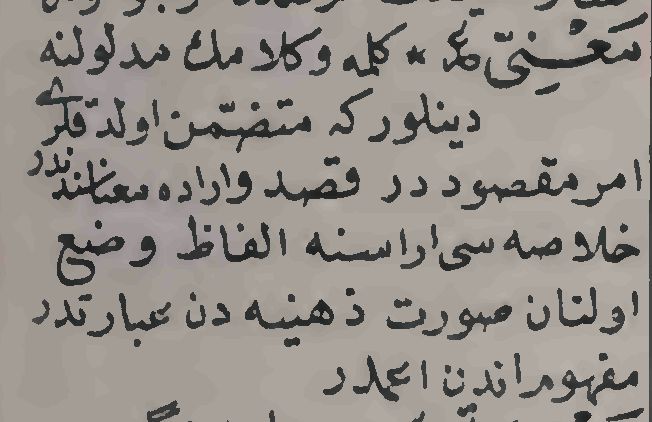 مَعْنِىّ ع * كلمه وكلامك مدلولنه
دينلور كه متضمّن اولدقلرى
امر مقصود در قصد واراده معناسندندر
خلاصه سى ازاسنه الفاظ وضع
اولنان صورت ذهنيه دن عبارتدر
مفهوم اندن اعمدر